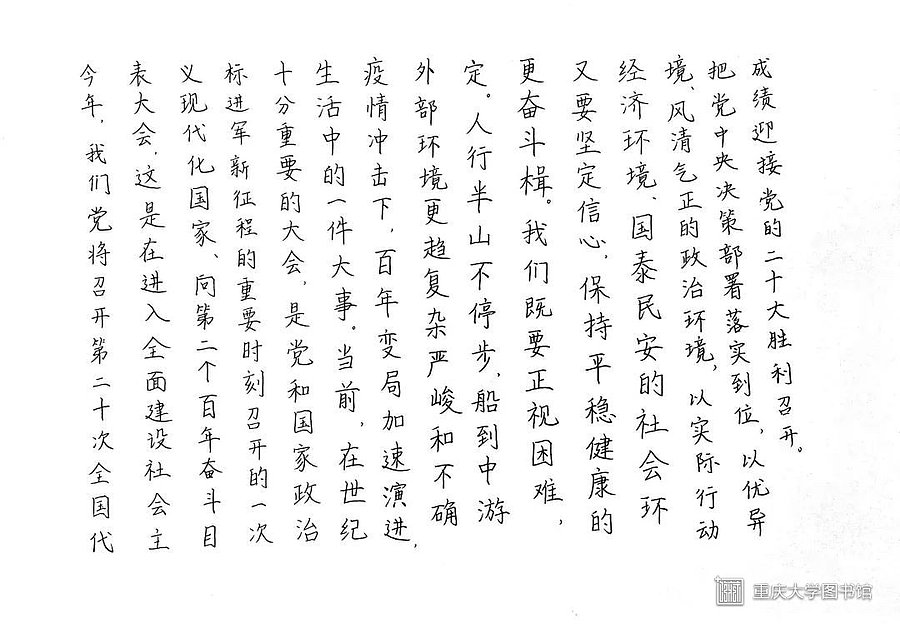 今年，我们党将召开第二十次全国代
表大会，这是在进入全面建设社会主
义现代化国家、向第二个百年奋斗目
标进军新征程的重要时刻召开的一次
十分重要的大会，是党和国家政治
生活中的一件大事。当前，在世纪
疫情冲击下，百年变局加速演进，
外部环境更趋复杂严峻和不确
定。人行半山不停步，船到中游
更奋斗楫。我们既要正视困难，
又要坚定信心，保持平稳健康的
经济环境、国泰民安的社会环
境、风清气正的政治环境，以实际行动
把党中央决策部署落实到位，以优异
成绩迎接党的二十大胜利召开。
重庆大学图书馆